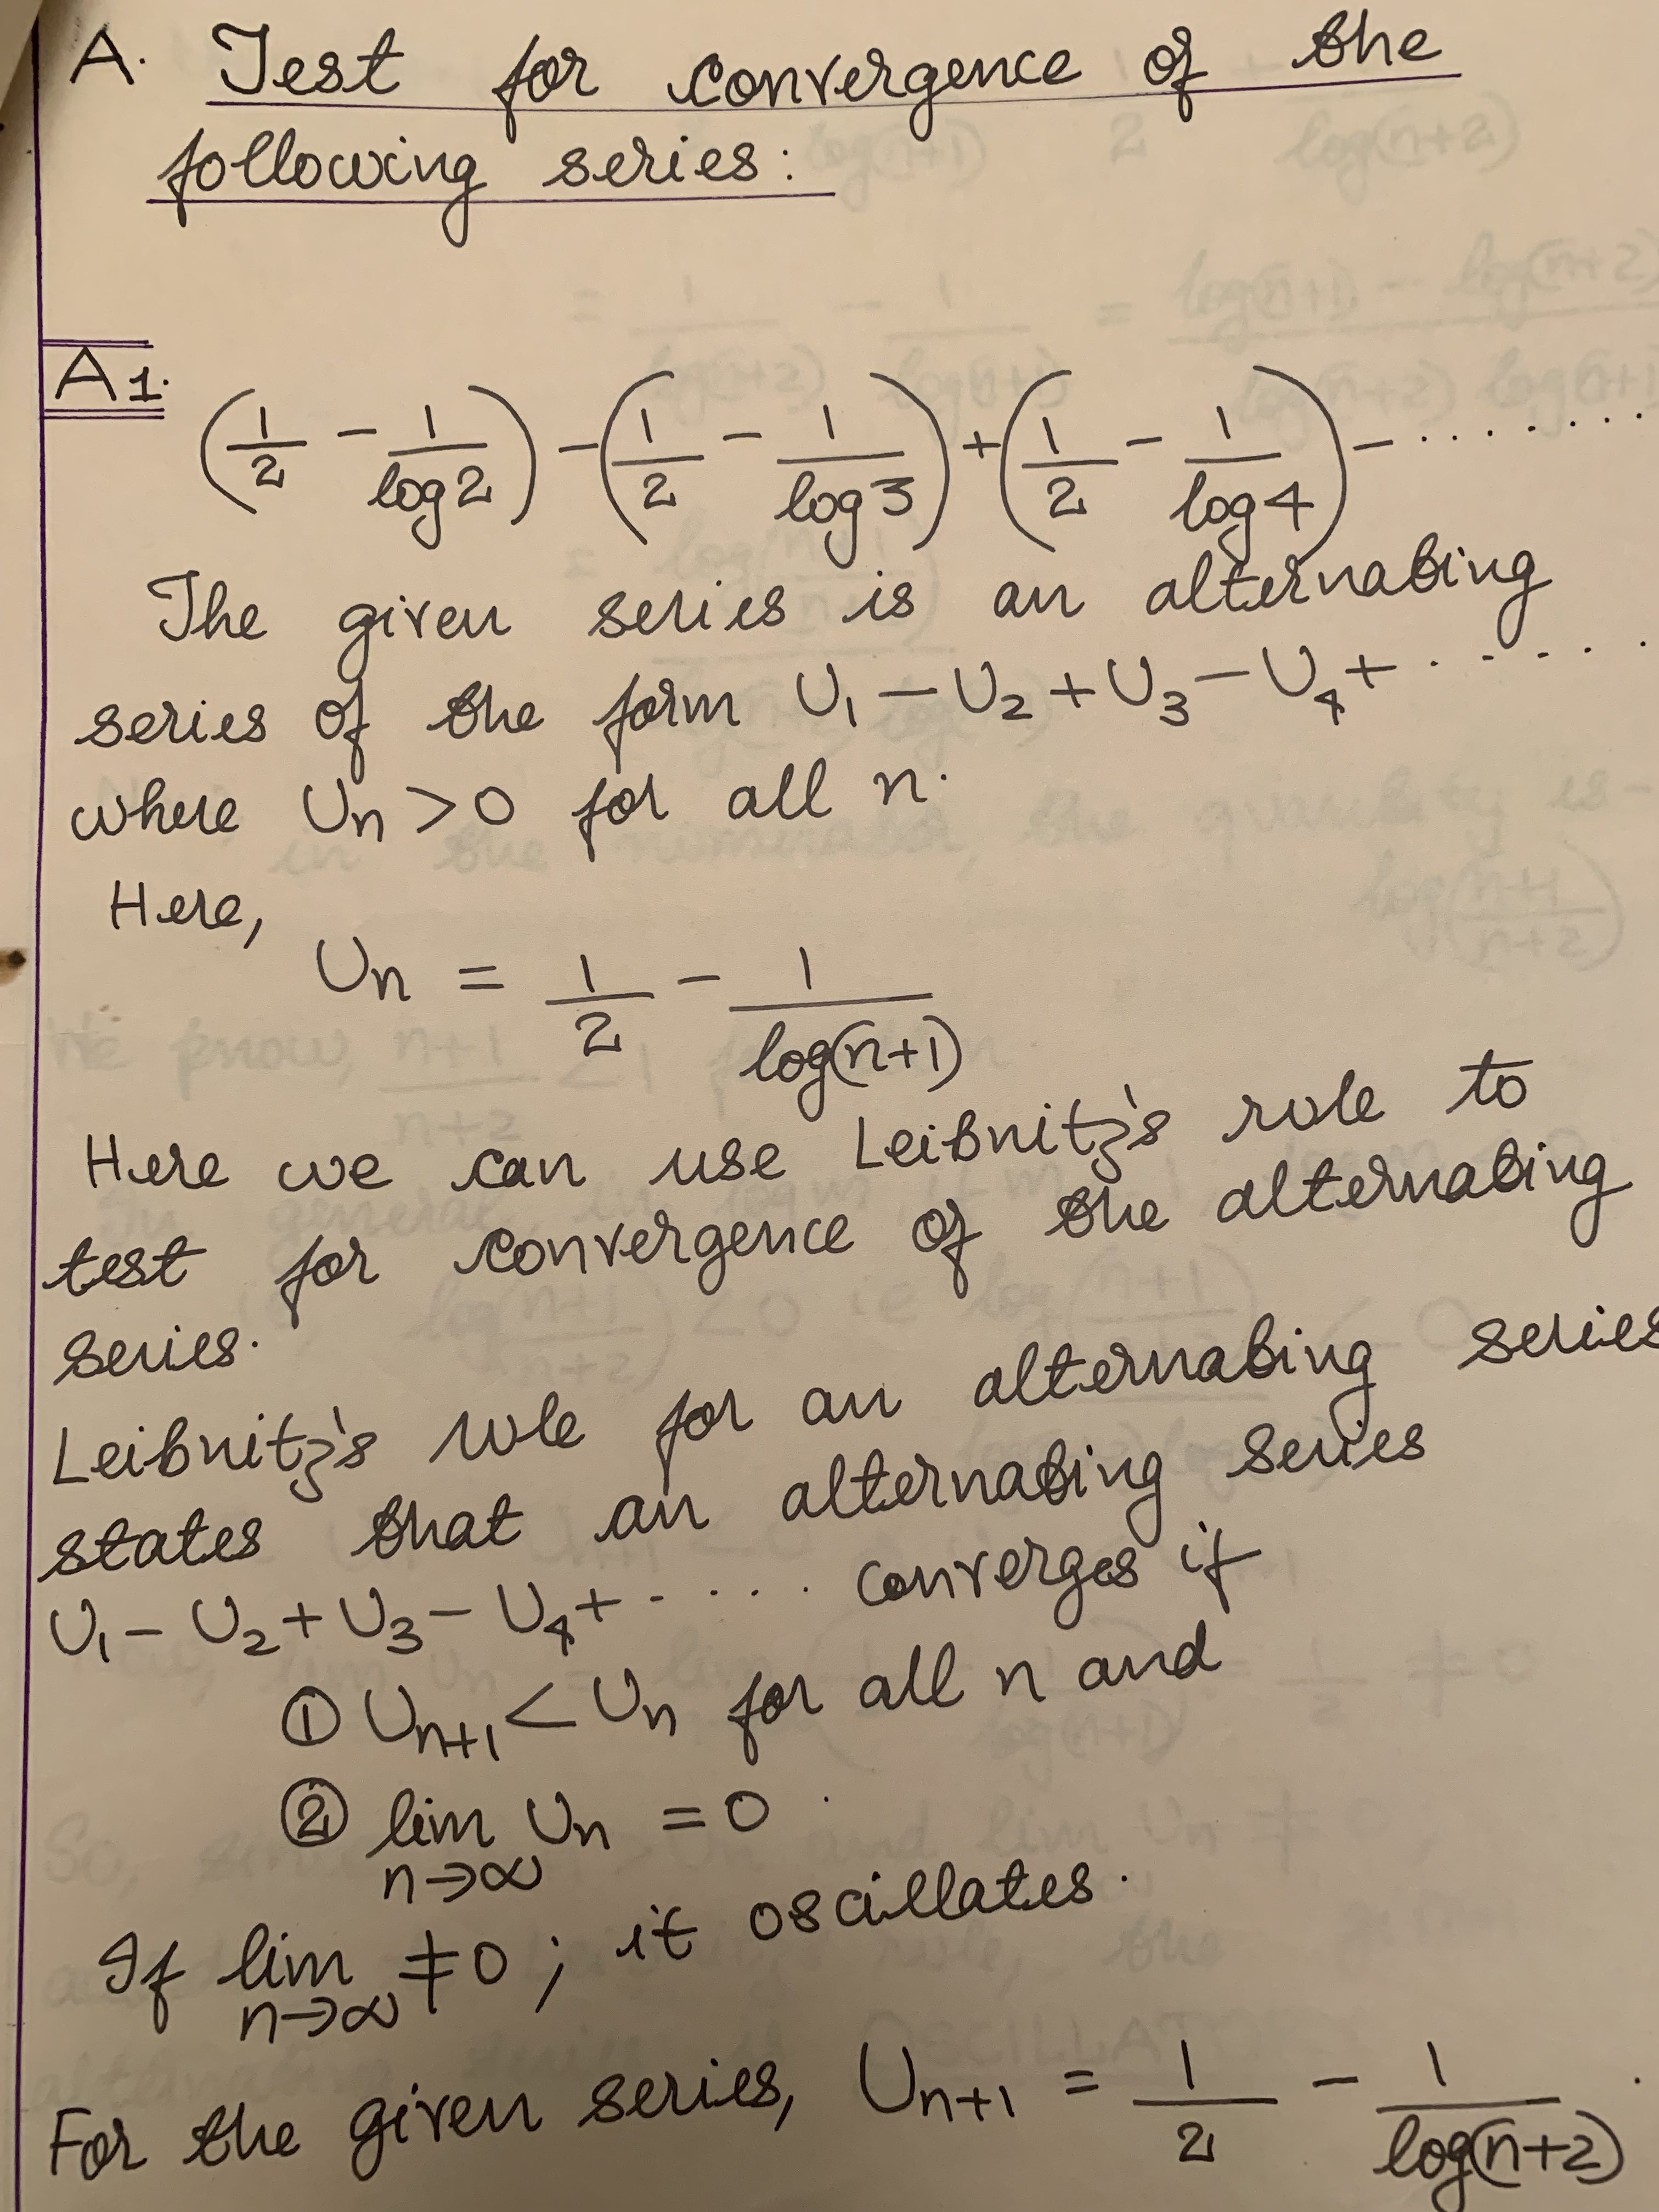 A. Test for convergence of the
following series:
A1. (1/2 - 1/log2) - (1/2 - 1/log3) + (1/2 - 1/log4) - ........
The given series is an alternating
series of the form U₁ - U₂ + U₃ - U₄ + ......
where Uₙ > 0 for all n.
Here,
Uₙ = 1/2 - 1/log(n+1)
Here we can use Leibnitz's rule to
test for convergence of the alternating
series.
Leibnitz's rule for an alternating series
states that an alternating series
U₁ - U₂ + U₃ - U₄ + ..... converges if
① Uₙ₊₁ < Uₙ for all n and
② lim n→∞ Uₙ = 0.
If lim n→∞ ≠ 0; it oscillates.
For the given series, Uₙ₊₁ = 1/2 - 1/log(n+2).